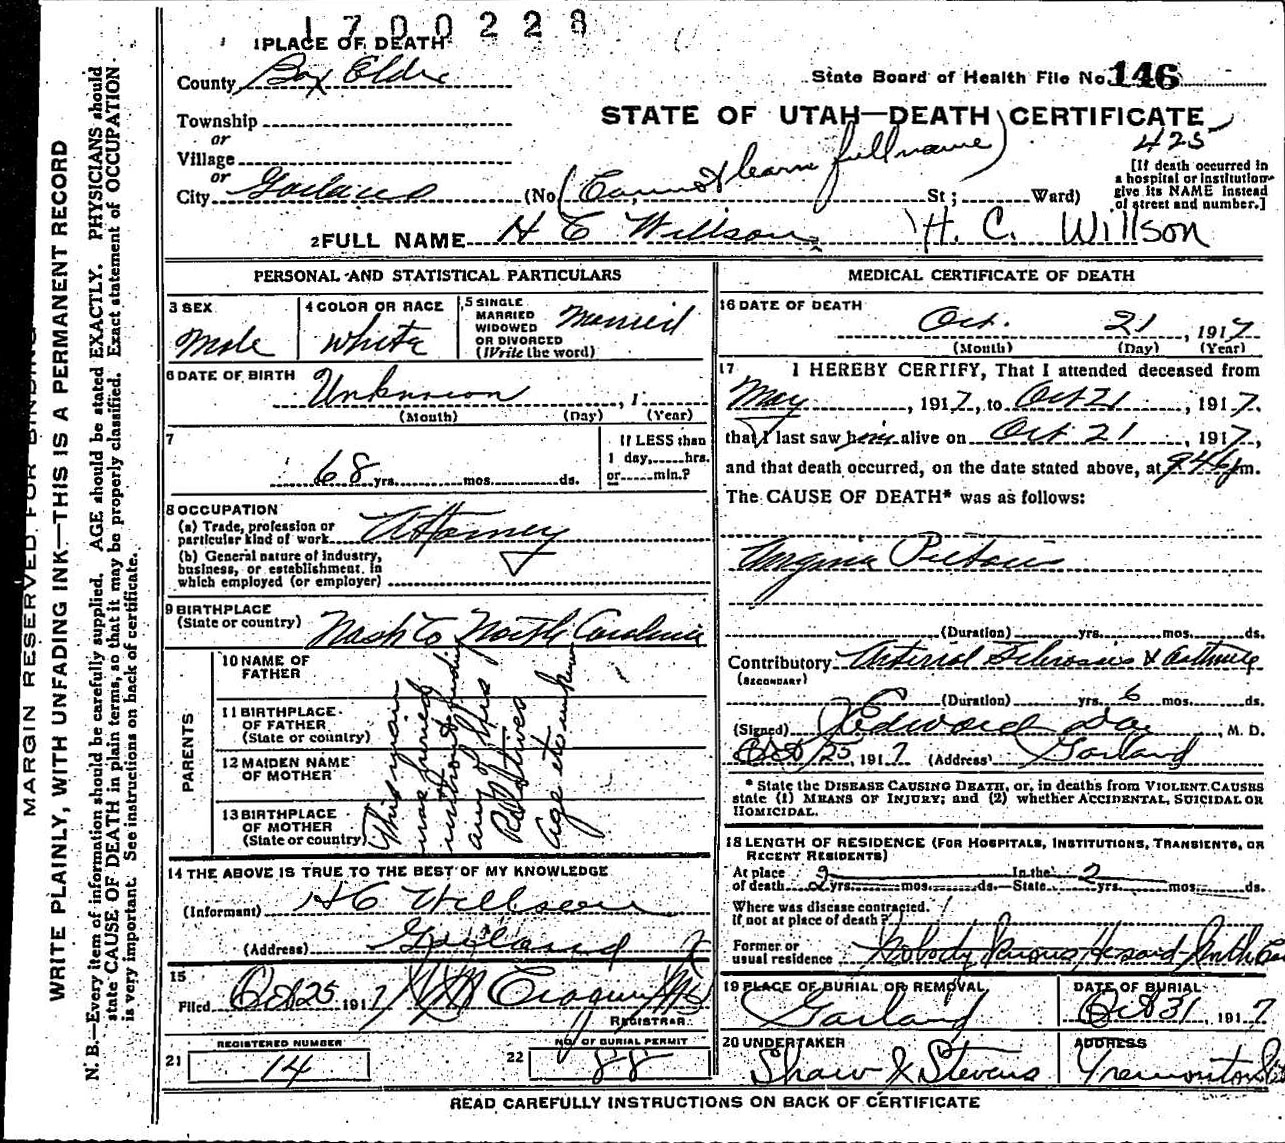 1700228
1 PLACE OF DEATH
County Box Elder
State Board of Health File No. 146
STATE OF UTAH—DEATH CERTIFICATE
Township
or
Village
or
City Garland (No. St; Ward)
(Cannot learn full name)
425
[If death occurred in
a hospital or institution
give its NAME instead
of street and number.]
2 FULL NAME H C Willson H. C. Willson
PERSONAL AND STATISTICAL PARTICULARS
3 SEX
Male
4 COLOR OR RACE
White
5 SINGLE
MARRIED
WIDOWED
OR DIVORCED
(Write the word)
Married
6 DATE OF BIRTH
Unknown , 1
(Month) (Day) (Year)
7
68 yrs. mos. ds.
If LESS than
1 day, hrs.
or min.?
8 OCCUPATION
(a) Trade, profession or
particular kind of work Attorney
(b) General nature of industry,
business, or establishment in
which employed (or employer)
9 BIRTHPLACE
(State or country) Nash Co North Carolina
PARENTS
10 NAME OF
FATHER
11 BIRTHPLACE
OF FATHER
(State or country)
12 MAIDEN NAME
OF MOTHER
13 BIRTHPLACE
OF MOTHER
(State or country)
This man
was buried
without finding
any of his
Relatives
age etc unknown
14 THE ABOVE IS TRUE TO THE BEST OF MY KNOWLEDGE
(Informant) H C Willson
(Address) Garland
15
Filed Oct 25 1917
REGISTRAR
REGISTERED NUMBER
21 14
NO. OF BURIAL PERMIT
22 88
MEDICAL CERTIFICATE OF DEATH
16 DATE OF DEATH
Oct. 21, 1917
(Month) (Day) (Year)
17 I HEREBY CERTIFY, That I attended deceased from
May, 1917, to Oct 21, 1917.
that I last saw him alive on Oct 21, 1917,
and that death occurred, on the date stated above, at m.
The CAUSE OF DEATH* was as follows:
Angina Pectoris
(Duration) yrs. mos. ds.
Contributory Arterial Sclerosis &
(SECONDARY)
(Duration) yrs. 6 mos. ds.
(Signed) Edward Day, M. D.
Oct 25 1917 (Address) Garland
* State the DISEASE CAUSING DEATH, or, in deaths from VIOLENT CAUSES
state (1) MEANS OF INJURY; and (2) whether ACCIDENTAL, SUICIDAL OR
HOMICIDAL.
18 LENGTH OF RESIDENCE (FOR HOSPITALS, INSTITUTIONS, TRANSIENTS, OR
RECENT RESIDENTS)
At place In the
of death 2 yrs. mos. ds. State 2 yrs. mos. ds.
Where was disease contracted,
if not at place of death?
Former or
usual residence Nobody Knows
19 PLACE OF BURIAL OR REMOVAL
Garland
DATE OF BURIAL
Oct 31, 1917
20 UNDERTAKER
Shaw & Stevens
ADDRESS
Tremonton
READ CAREFULLY INSTRUCTIONS ON BACK OF CERTIFICATE
MARGIN RESERVED FOR BINDING
WRITE PLAINLY, WITH UNFADING INK—THIS IS A PERMANENT RECORD
N. B.—Every item of information should be carefully supplied. AGE should be stated EXACTLY. PHYSICIANS should
state CAUSE OF DEATH in plain terms, so that it may be properly classified. Exact statement of OCCUPATION
is very important. See instructions on back of certificate.